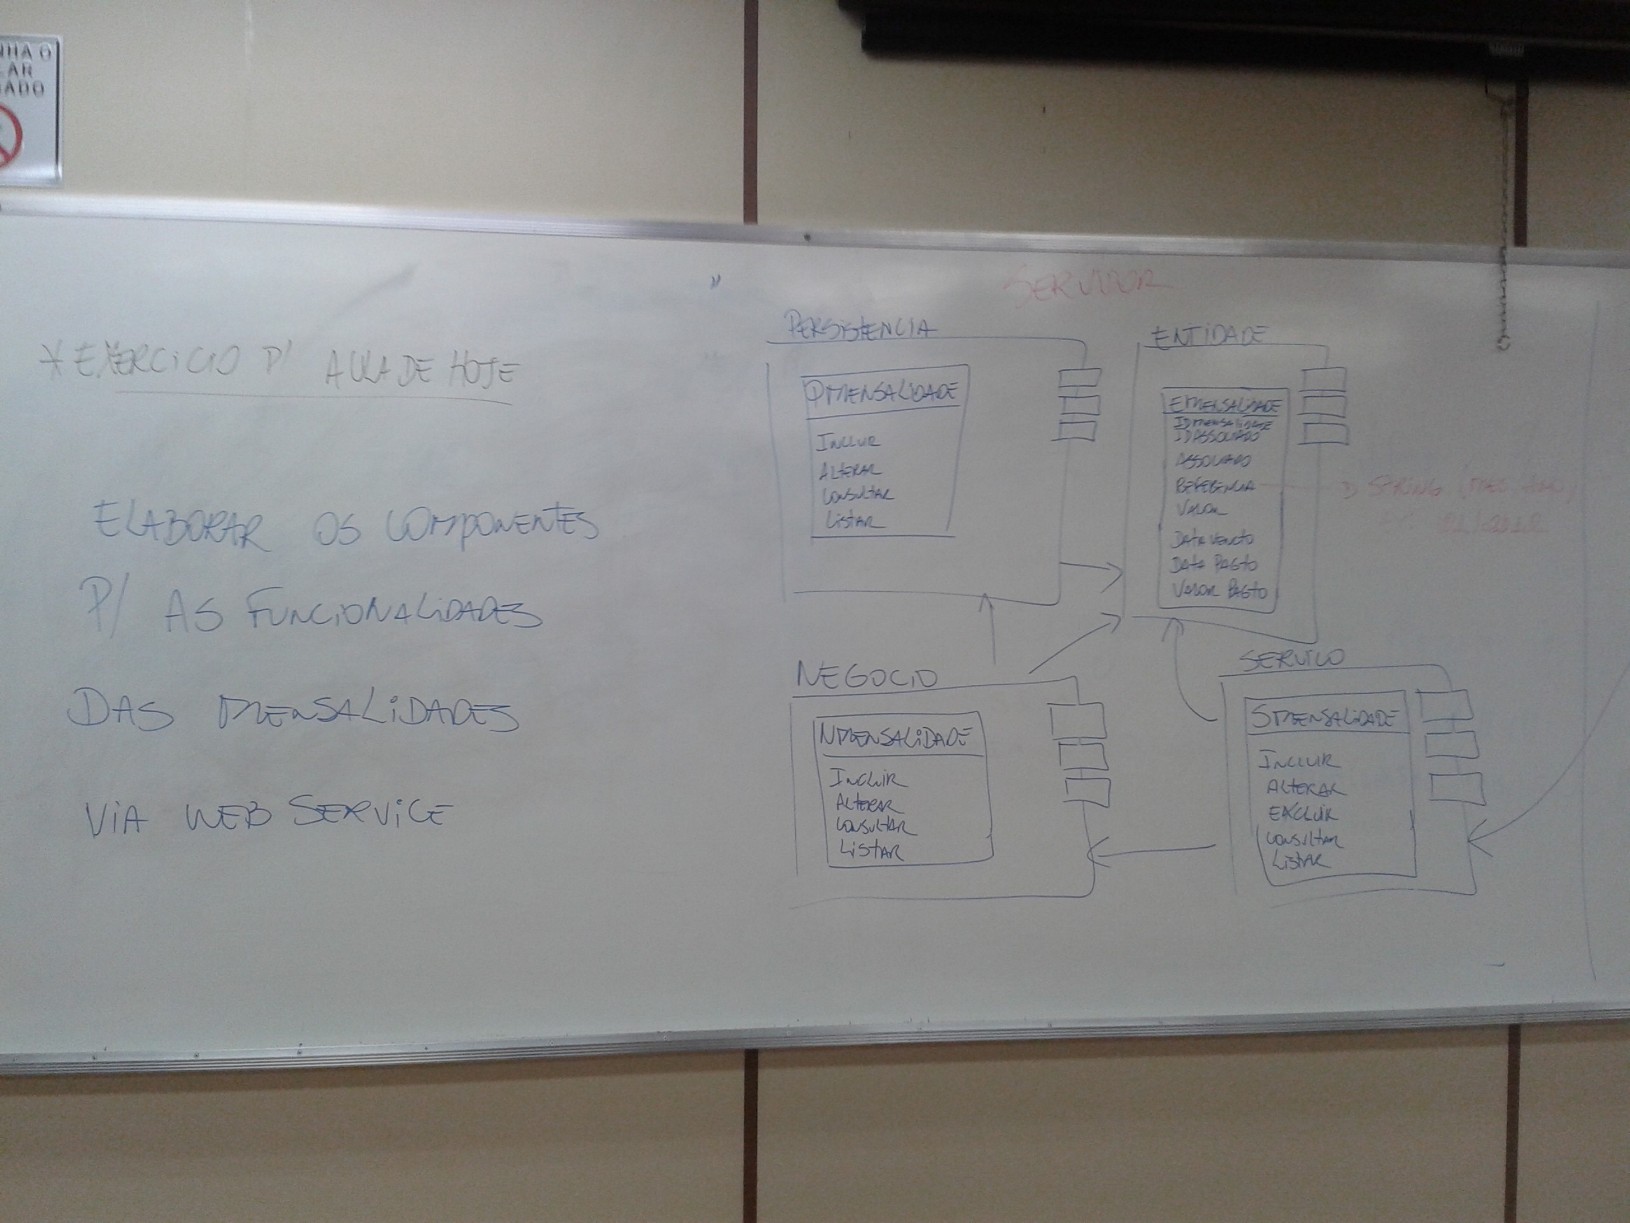 NHA O
LAR
GADO
* EXERCICIO P/ AULA DE HOJE
ELABORAR OS COMPONENTES
P/ AS FUNCIONALIDADES
DAS MENSALIDADES
VIA WEB SERVICE
SERVIDOR
PERSISTENCIA
PMENSALIDADE
INCLUIR
ALTERAR
CONSULTAR
LISTAR
ENTIDADE
EMENSALIDADE
IDMENSALIDADE
IDASSOCIADO
ASSOCIADO
REFERENCIA
STRING
VALOR
DATA VENCTO
DATA PAGTO
VALOR PAGTO
NEGOCIO
NMENSALIDADE
INCLUIR
ALTERAR
CONSULTAR
LISTAR
SERVICO
SMENSALIDADE
INCLUIR
ALTERAR
EXCLUIR
CONSULTAR
LISTAR